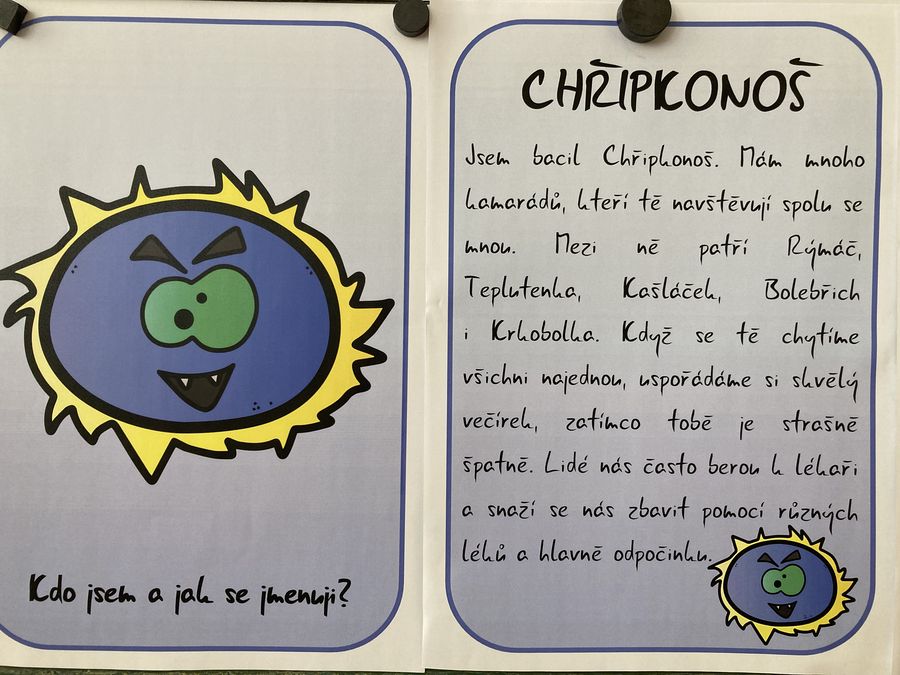 Kdo jsem a jak se jmenuji?
CHŘIPKONOŠ
Jsem bacil Chřipkonoš. Mám mnoho
kamarádů, kteří tě navštěvují spolu se
mnou. Mezi ně patří Rýmáč,
Teplutenka, Kašláček, Bolebřich
i Krkobolka. Když se tě chytíme
všichni najednou, uspořádáme si skvělý
večírek, zatímco tobě je strašně
špatně. Lidé nás často berou k lékaři
a snaží se nás zbavit pomocí různých
léků a hlavně odpočinku.